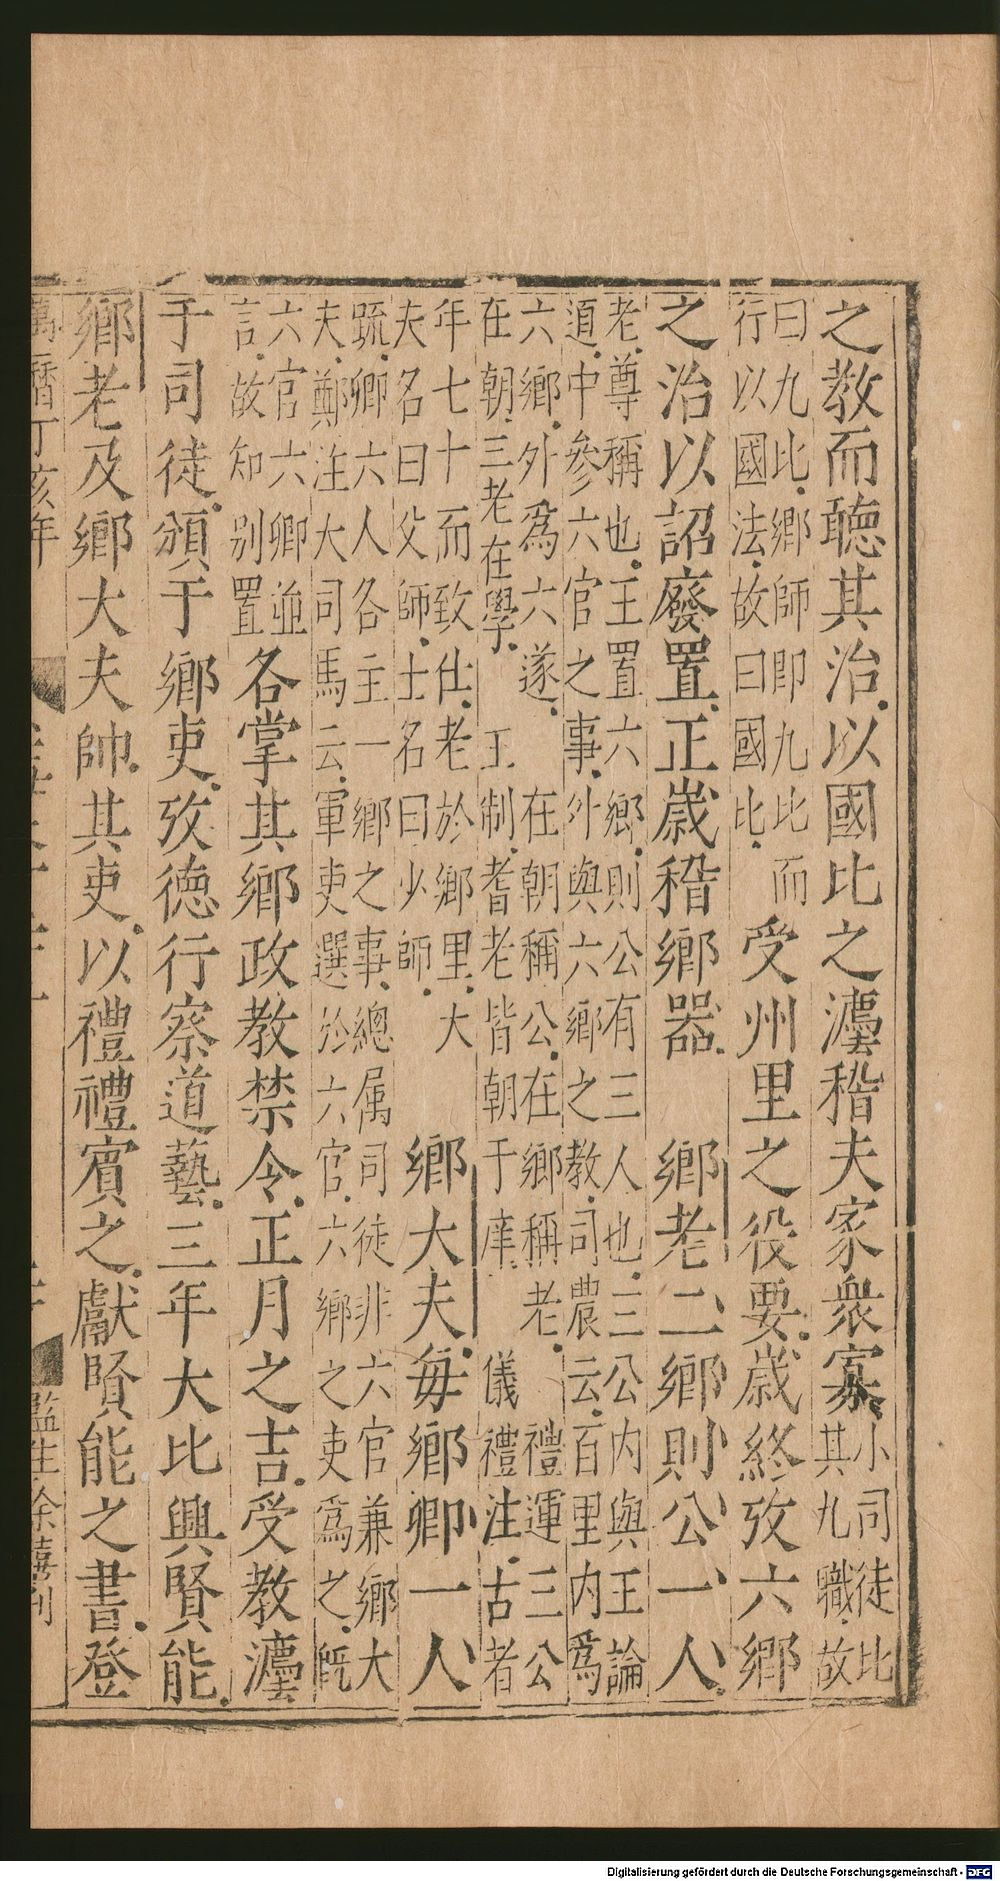 之教而聽其治以國比之灋稽夫家衆寡小司徒比其九職故
曰九比鄉師即九比而行以國法故曰國比受州里之役要歲終攷六鄉
之治以詔廢置正歲稽鄉器 鄉老二鄉則公一人
老尊稱也王置六鄉則公有三人也三公内與王論道中參六官之事外與六鄉之教司農云百里内爲
六鄉外爲六遂 在朝稱公在鄉稱老 禮運三公在朝三老在學 王制耆老皆朝于庠 儀禮注古者
年七十而致仕老於鄉里大夫名曰父師士名曰少師 鄉大夫每鄉卿一人
疏卿六人各主一鄉之事總属司徒非六官兼鄉大夫鄭注大司馬云軍吏選於六官六鄉之吏爲之既
六官六卿並言故知别置各掌其鄉政教禁令正月之吉受教灋
于司徒頒于鄉吏攷德行察道藝三年大比興賢能
鄉老及鄉大夫帥其吏以禮禮賓之獻賢能之書登
萬曆丁亥年
監生余禧刊
Digitalisierung gefördert durch die Deutsche Forschungsgemeinschaft - DFG